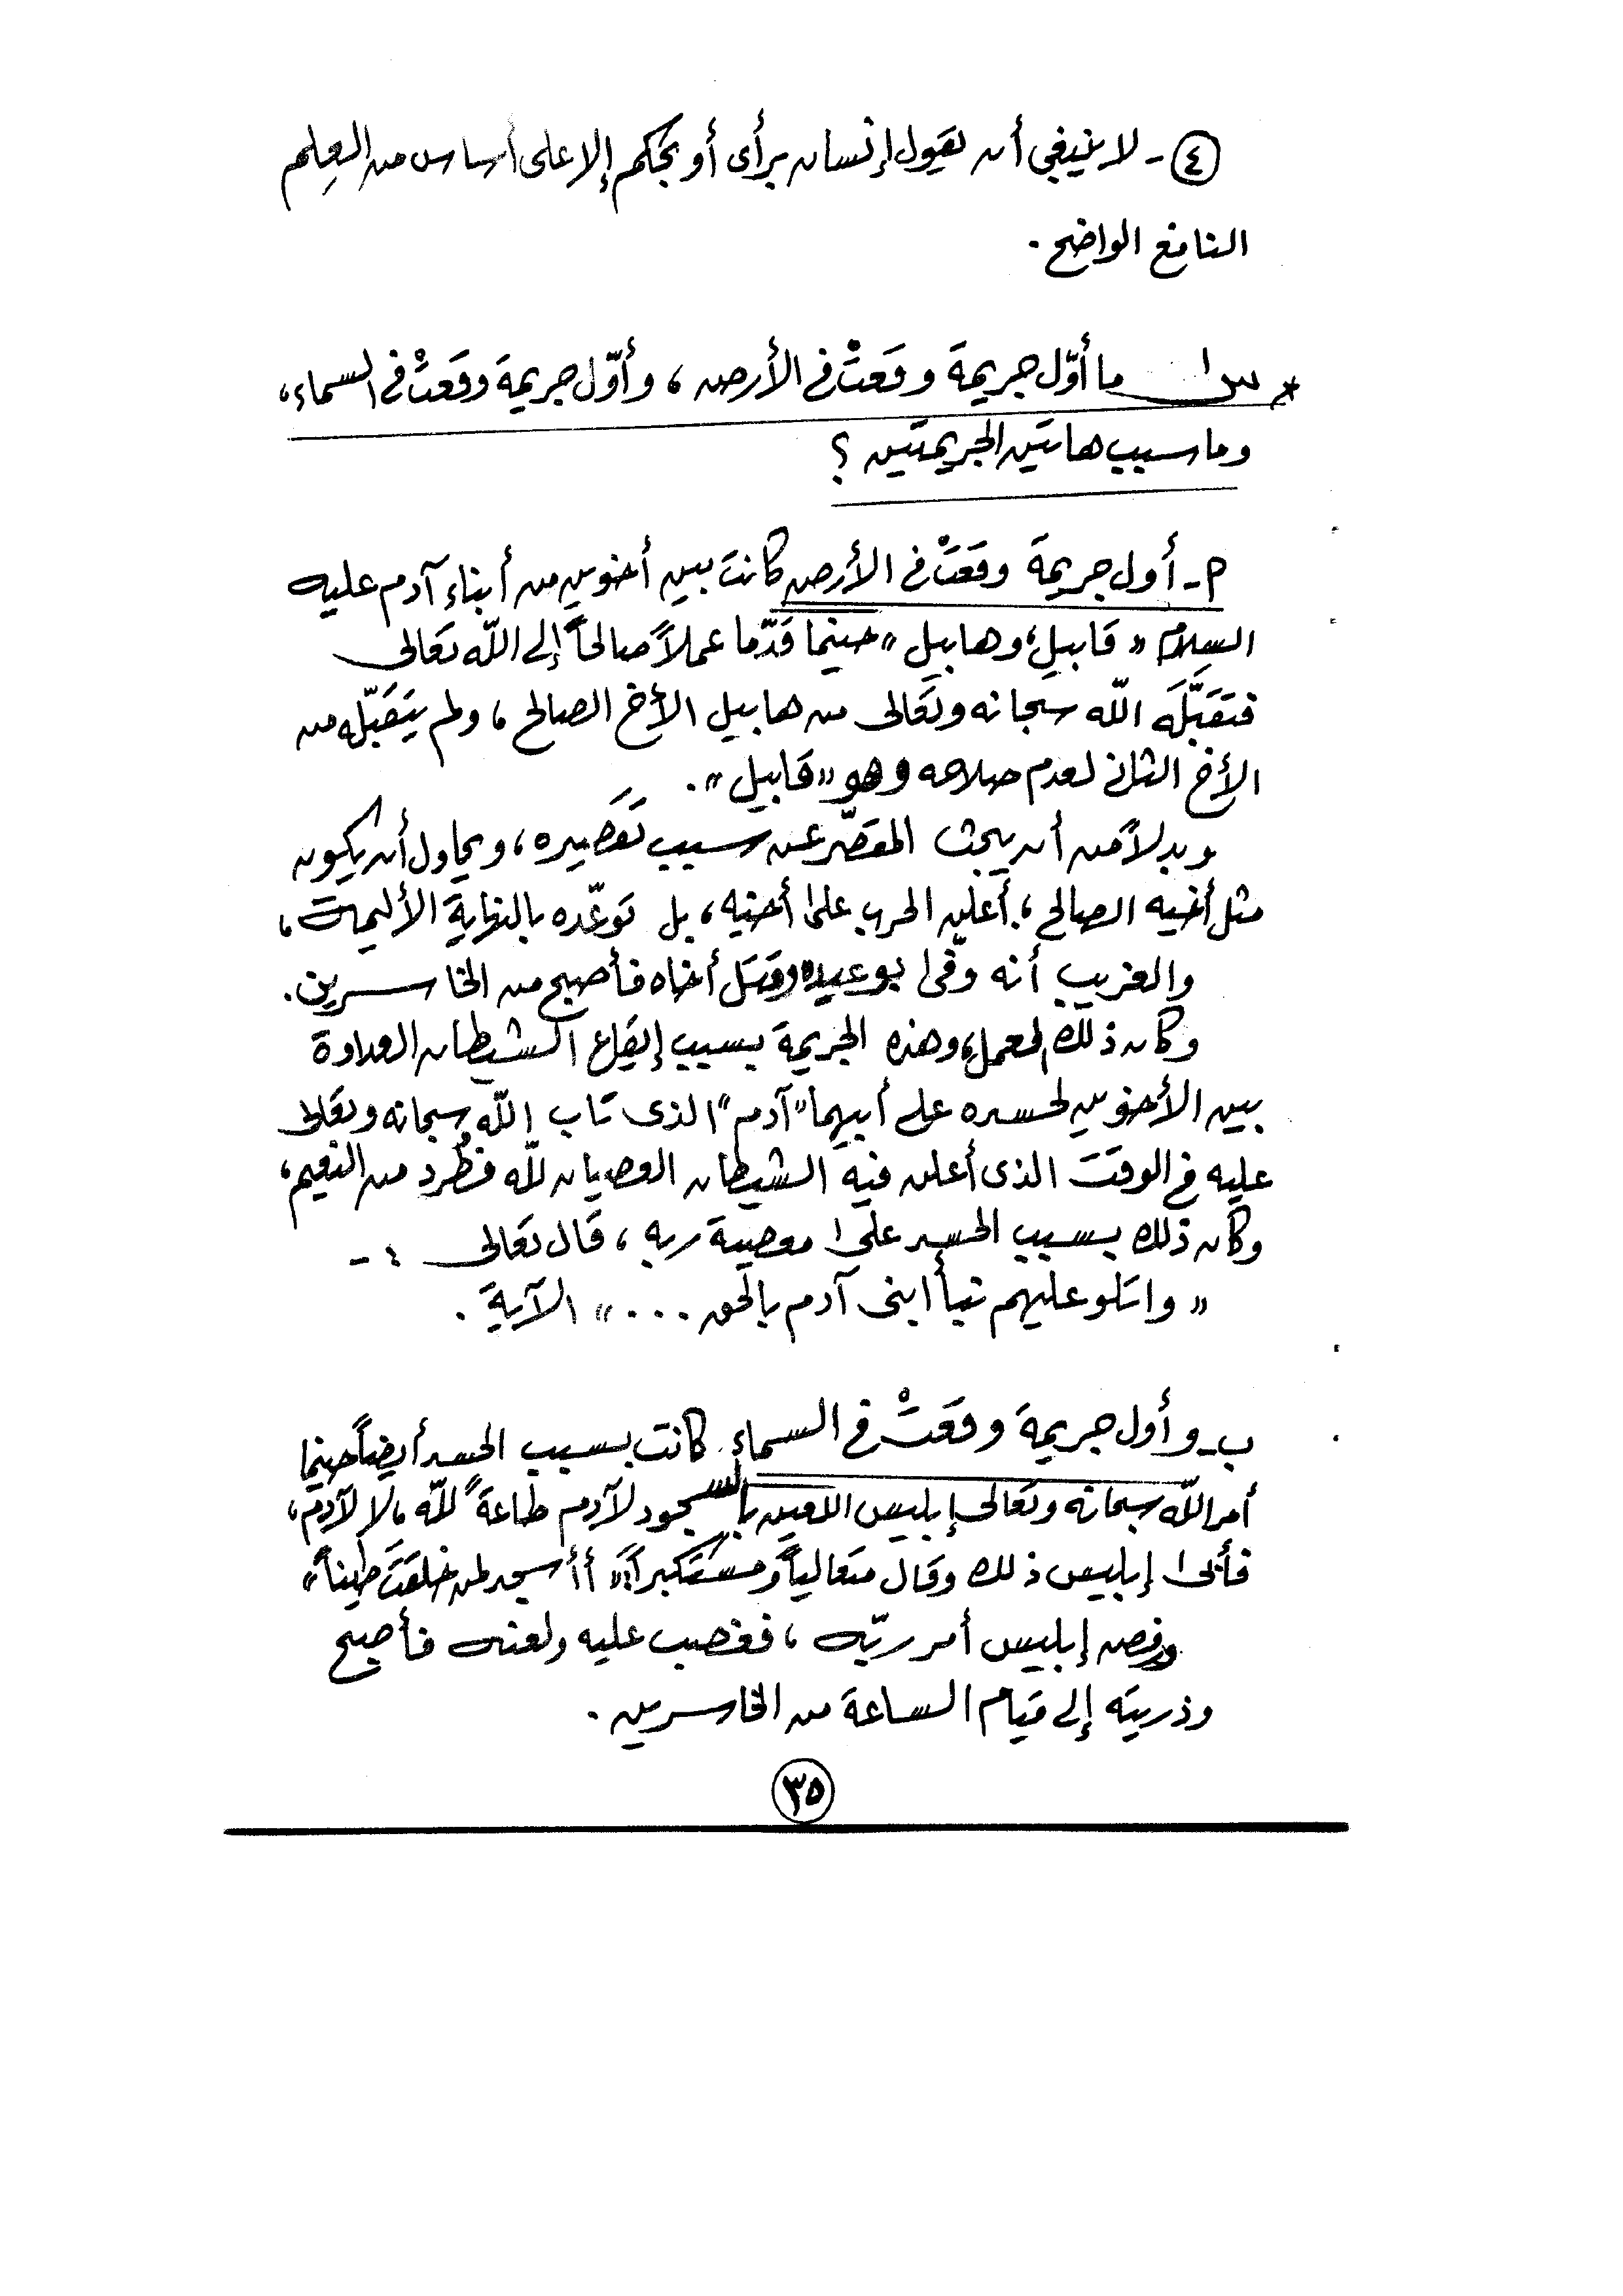 ④ - لا ينبغي أن يقول إنسان برأى أو يحكم إلا على أساس من العِلم
النافع الواضح .
* س١ ما أوّل جريمة وقعَتْ فى الأرض ، وأوّل جريمة وقعَتْ فى السماء ،
وما سبب هاتَين الجريمتَين ؟
م - أول جريمة وقعَتْ فى الأرض كانت بين أخوين من أبناءِ آدم عليه
السلام « قابيل ، وهابيل » حينما قَدّما عملاً صالحاً إلى اللّه تعَالى
فتَقَبَّلَه اللّه سبحانه وتعَالى من هابيل الأخ الصالح ، ولم يتَقَبّله من
الأخ الثانى لعدم صلاحه وهو « قابيل » .
وبدلاً من أن يبحث المقَصّر عن سبب تَقَصيره ، ويحاول أن يكون
مثل أخيه الصالح ، أعلن الحرب على أخيه ، بل توعّده بالنهاية الأليمة ،
والغريب أنه وفّى بوعيده وقتل أخاه فأصبح من الخاسرين .
وكان ذلك العمل ، وهذه الجريمة بسبب إيقاع الشيطان العداوة
بين الأخوين لحسده على أبيهما « آدم » الذى تاب اللّه سبحانه وتعالى
عليه فى الوقت الذى أعلن فيه الشيطان العصيان للّه فطُرد من النعيم ،
وكان ذلك بسبب الحسد على معصية ربه ، قال تعَالى : -
« واتلو عليهم نبأ ابنى آدم بالحق . . . » الآية .
ب - وأول جريمة وقعَتْ فى السماءِ كانت بسبب الحسد أيضاً حينما
أمر اللّه سبحانه وتعَالى إبليس اللعين بالسجود لآدم طاعةً للّه ، لا لآدم ،
فأبى إبليس ذلك وقال متعالياً ومستكبراً « أأسجد لمن خلقتَ طيناً »
ورفض إبليس أمر ربّه ، فغضب عليه ولعنه فأصبح
وذريته إلى قيام الساعة من الخاسرين .
٣٥